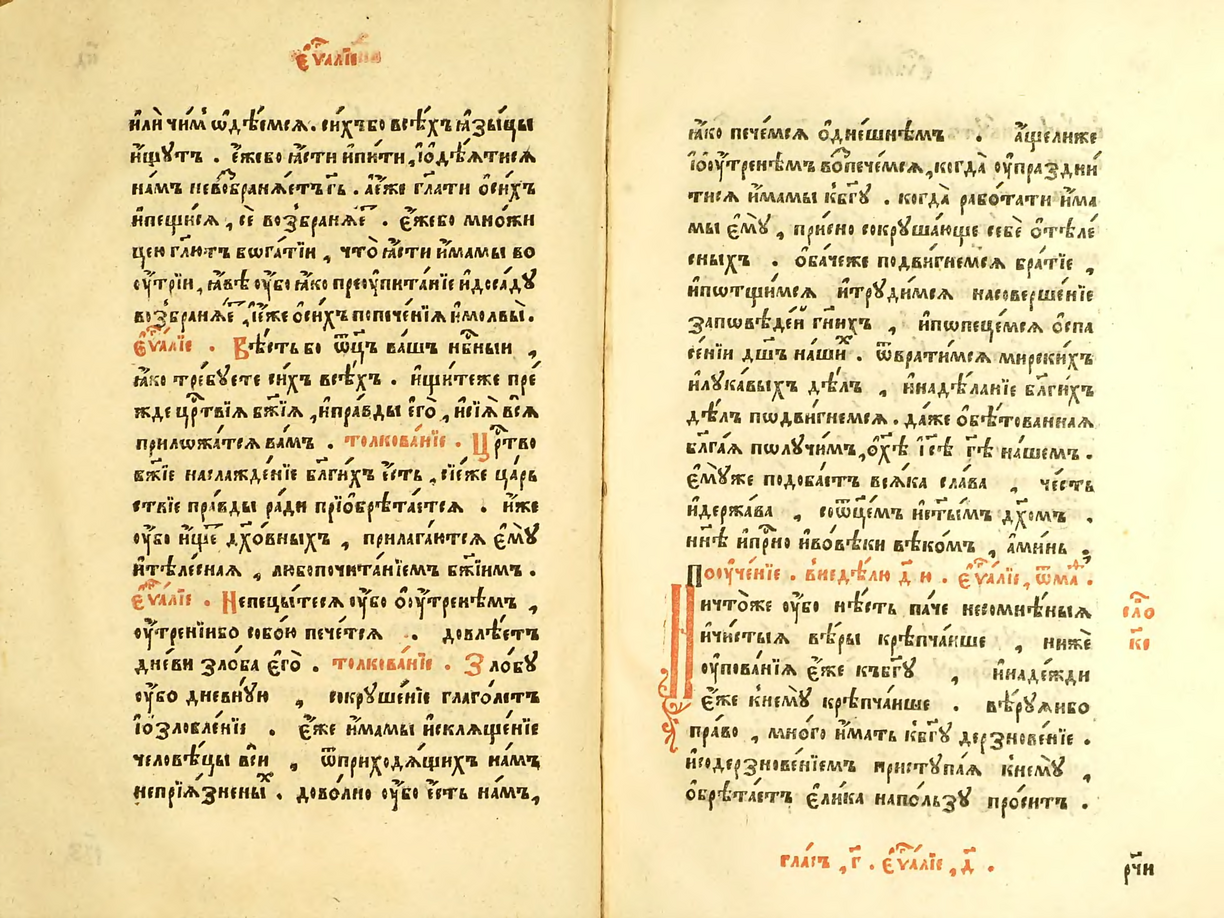 є҆ѵⷢ҇алїе
и҆лѝ чи́мъ ѡ҆дѣ́емсѧ. си́хъ бо всѣ́хъ ꙗ҆зы́цы
и҆́щꙋтъ . є҆́же бо ꙗ҆́сти и҆пи́ти, і҆ѡ҆дѣ́ѧтисѧ
на́мъ невозбранѧ́етъ гь҃ . а҆є҆́же гл҃ати ѻ҆си́хъ
и҆пещи́сѧ , сѐ возбранѧ́еⷮ . є҆́жебо мно́жи
цею гл҃ютъ бога́тїи , что̀ ꙗ҆́сти и҆́мамы во
ᲂу҆́трїи, ꙗ҆́вѣ ᲂу҆́бо ꙗ҆́ко преᲂупита́нїе и҆доса́дꙋ
возбранѧ́еⷮ , і҆є҆́же ѻ҆си́хъ попече́нїѧ и҆молвы̀.
є҆ѵⷢ҇алїе . Вѣ́сть бо ѿц҃ъ ва́шъ нбⷭ҇ныи ,
ꙗ҆́ко тре́бꙋете си́хъ всѣ́хъ . и҆щи́теже пре́
жде црⷭ҇твїѧ бж҃їѧ , и҆пра́вды є҆гѡ̀ , и҆сїѧ̑ всѧ̑
прилѡжа́тсѧ ва́мъ . толкова́нїе . Црⷭ҇тво
бж҃їе наслажде́нїе бл҃ги́хъ є҆́сть , сїе́же ца́рь
ствїе пра́вды ра́ди прїѡбрѣта́етсѧ . и҆́же
ᲂу҆́бо и҆́щеⷮ дх҃о́вныхъ , прилага́ютсѧ є҆мꙋ̀
и҆тѣле́снаѧ , любопочита́нїемъ бж҃їимъ .
є҆ѵⷢ҇алїе . Непецы́тесѧ ᲂу҆́бо ѻ҆ᲂу҆́тренѣмъ ,
ᲂу҆́тренїибо собо́ю пече́тсѧ . довлѣ́етъ
дне́ви зло́ба є҆гѡ̀ . толкова́нїе . Зло́бꙋ
ᲂу҆́бо дневнꙋ́ю , сокрꙋше́нїе глаго́летъ
і҆ѡзловле́нїе . є҆́же и҆́мамы и҆склѧще́нїе
человѣ́цы вси̑ , ѿприходѧ́щихъ на́мъ
непрїѧ́зненыⷯ . дово́лно ᲂу҆́бо є҆́сть на́мъ,
ꙗ҆́ко пече́мсѧ ѻ҆дне́шнѣмъ . а҆́щелиже
і҆ѻ҆ᲂу҆́тренѣмъ воспече́мсѧ, когда̀ ᲂу҆праздни́
тисѧ и҆́мамы кбг҃ꙋ . когда̀ рабо́тати и҆́ма
мы є҆мꙋ̀ , при́сно сокрꙋша́юще себѐ ѻ҆тѣле́
сныхъ . ѻ҆ба́чеже подви́гнемсѧ бра́тїе ,
и҆пѡтщи́мсѧ и҆трꙋди́мсѧ насоверше́нїе
за́повѣдей гн҃ихъ , и҆пѡпеце́мсѧ ѻ҆спа
се́нїи дш҃ъ на́шиⷯ . ѿврати́мсѧ мирски́хъ
и҆лꙋка́выхъ дѣ́лъ , и҆надѣ́ланїе бл҃ги́хъ
дѣ́лъ пѡдви́гнемсѧ . да́же ѻ҆бѣтова́ннаѧ
бл҃га́ѧ пѡлꙋчи́мъ, ѻ҆хѣ҃ і҆с҃ѣ гд҃ѣ на́шемъ .
є҆мꙋ́же подоба́етъ всѧ́ка сла́ва , че́сть
и҆держа́ва , соѿц҃е́мъ и҆ст҃ы́мъ дх҃омъ ,
нн҃ѣ и҆при́снѡ и҆вовѣ́ки вѣко́мъ , а҆ми́нь .
Поᲂуче́нїе . внедѣ́лю д҃ н . є҆ѵⷢ҇алїе, ѿмаⷴ .
Ничто́же ᲂу҆́бо нѣ́сть па́че несомнѣ́ныѧ
и҆чи́стыѧ вѣ́ры крѣпча́ише , ни́же
ᲂу҆пова́нїѧ є҆́же къбг҃ꙋ , и҆наде́жди
є҆́же кнемꙋ̀ крѣпча́ише . вѣ́рꙋѧибо
пра́во , мно́го и҆́мать кбг҃ꙋ дерзнове́нїе .
и҆содерзнове́нїемъ пристꙋпа́ѧ кнемꙋ̀ ,
ѻ҆брѣта́етъ є҆ли́ка напо́льзꙋ про́ситъ .
сло́
к҃ѻ
гла́съ , г҃ . є҆ѵⷢ҇алїе , д҃ .
рч҃и